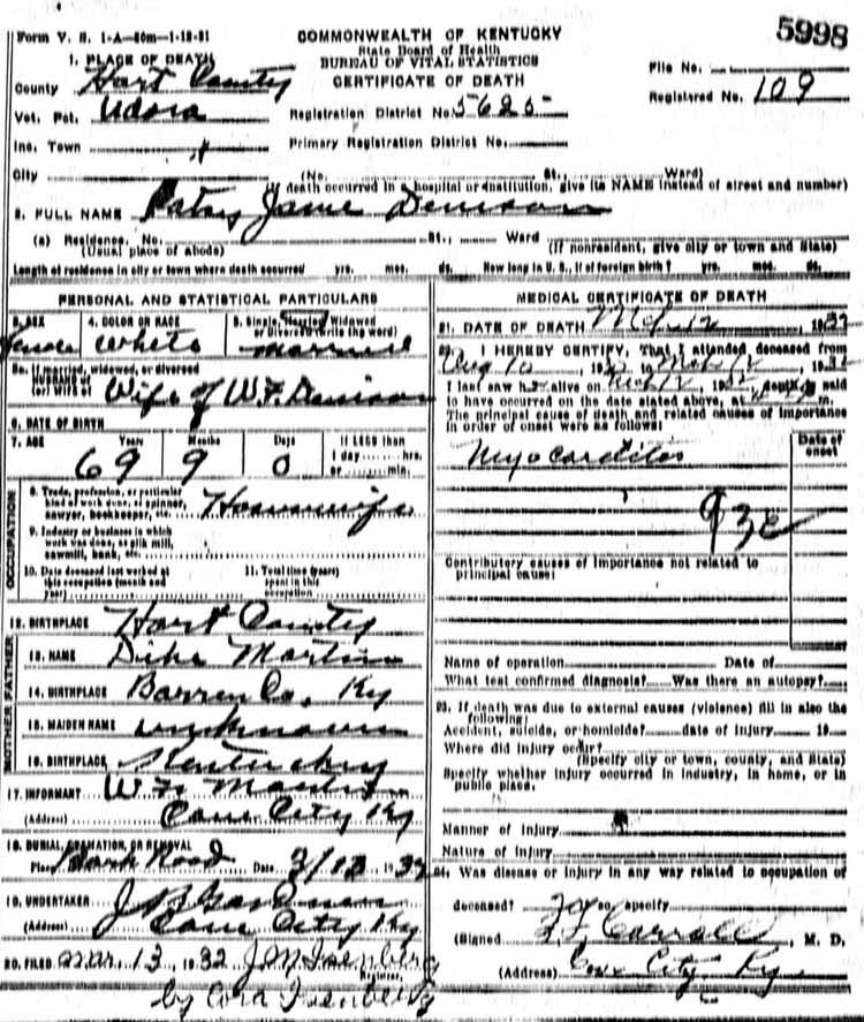 5998
Form V. S. 1-A—50m—1-12-31
COMMONWEALTH OF KENTUCKY
State Board of Health
BUREAU OF VITAL STATISTICS
CERTIFICATE OF DEATH
File No.
Registered No. 109
1. PLACE OF DEATH
County Hart County
Vot. Pct. Udora
Registration District No. 5625
Inc. Town
Primary Registration District No.
City (No. St., Ward)
(If death occurred in a hospital or institution, give its NAME instead of street and number)
2. FULL NAME Patsy Jane Denison
(a) Residence. No. St., Ward
(Usual place of abode) (If nonresident, give city or town and State)
Length of residence in city or town where death occurred yrs. mos. ds. How long in U. S., if of foreign birth? yrs. mos. ds.
PERSONAL AND STATISTICAL PARTICULARS
3. SEX 4. COLOR OR RACE 5. Single, Married, Widowed
or Divorced (write the word)
Female White married
5a. If married, widowed, or divorced
HUSBAND of
(or) WIFE of Wife of W.F. Denison
6. DATE OF BIRTH
7. AGE Years Months Days If LESS than
1 day hrs.
or min.
69 9 0
OCCUPATION
8. Trade, profession, or particular
kind of work done, as spinner,
sawyer, bookkeeper, etc. Housewife
9. Industry or business in which
work was done, as silk mill,
sawmill, bank, etc.
10. Date deceased last worked at
this occupation (month and
year)
11. Total time (years)
spent in this
occupation
12. BIRTHPLACE Hart County
FATHER
13. NAME Dike Martin
14. BIRTHPLACE Barren Co. Ky
MOTHER
15. MAIDEN NAME unknown
16. BIRTHPLACE Kentucky
17. INFORMANT W
(Address) Cave City Ky
18. BURIAL, CREMATION, OR REMOVAL
Place Date 3/13 1932
19. UNDERTAKER J B
(Address) Cave City Ky
20. FILED Mar. 13, 1932 J M Isenberg
Registrar
by Cora Isenberg
MEDICAL CERTIFICATE OF DEATH
21. DATE OF DEATH Mch 12, 1932
22. I HEREBY CERTIFY, That I attended deceased from
Aug 10, 19 to Mch 12, 1932
I last saw her alive on Mch 12, 1932, death is said
to have occurred on the date stated above, at m.
The principal cause of death and related causes of importance
in order of onset were as follows:
Date of
onset
Myocarditis
93c
Contributory causes of importance not related to
principal cause:
Name of operation Date of
What test confirmed diagnosis? Was there an autopsy?
23. If death was due to external causes (violence) fill in also the
following:
Accident, suicide, or homicide? date of injury 19
Where did injury occur?
(Specify city or town, county, and State)
Specify whether injury occurred in industry, in home, or in
public place.
Manner of injury
Nature of injury
24. Was disease or injury in any way related to occupation of
deceased? If so, specify
(Signed Carroll, M. D.
(Address) Cave City Ky